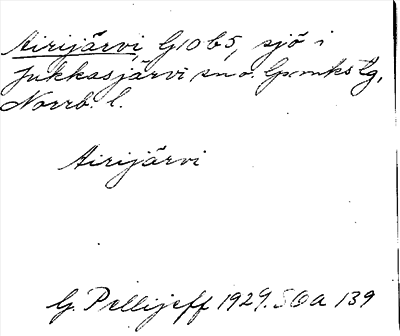 Airijärvi, G10b5, sjö i
Jukkasjärvi sn o. Lpmks tg,
Norrb. l.
Airijärvi
G. Pellijeff 1929. SOA 139